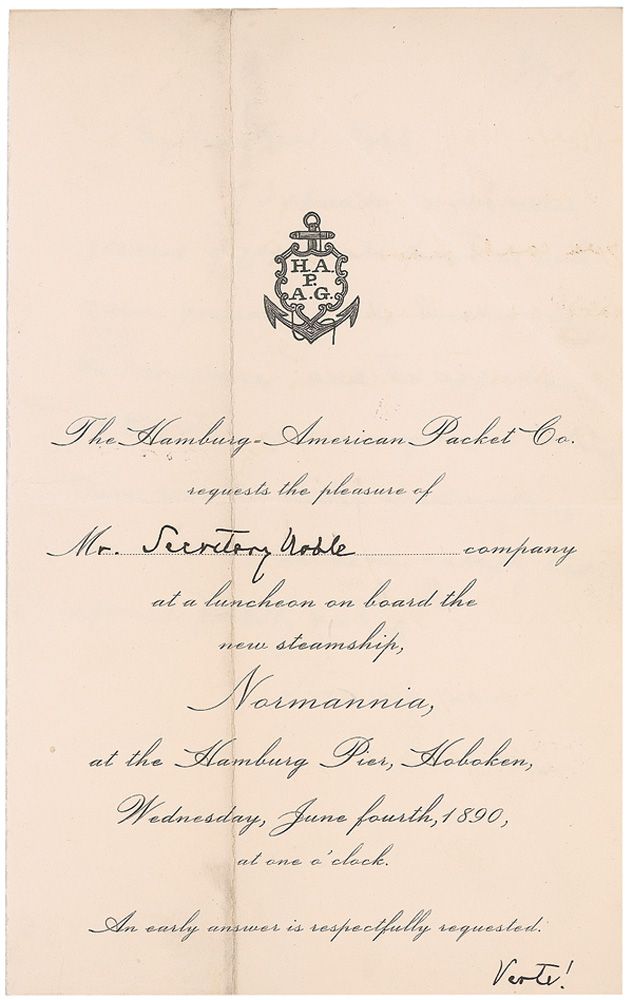 H.A.
P.
A.G.
The Hamburg-American Packet Co.
requests the pleasure of
Mr. Secretary Noble company
at a luncheon on board the
new steamship,
Normannia,
at the Hamburg Pier, Hoboken,
Wednesday, June fourth, 1890,
at one o'clock.
An early answer is respectfully requested.
Verte!